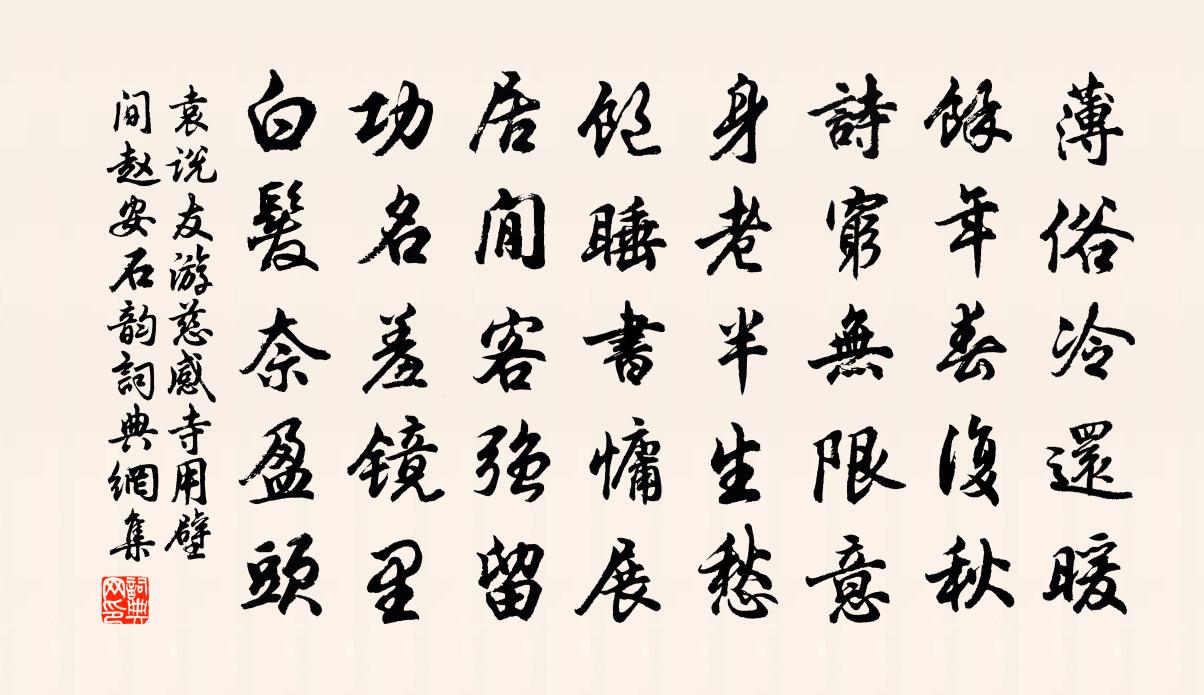 薄俗冷還暖
餘年春復秋
詩窮無限意
身老半生愁
飽睡書慵展
居閒客强留
功名羞镜里
白髮奈盈頭
袁说友游慈感寺用壁
间赵安石韵詞典網集
詞典网印